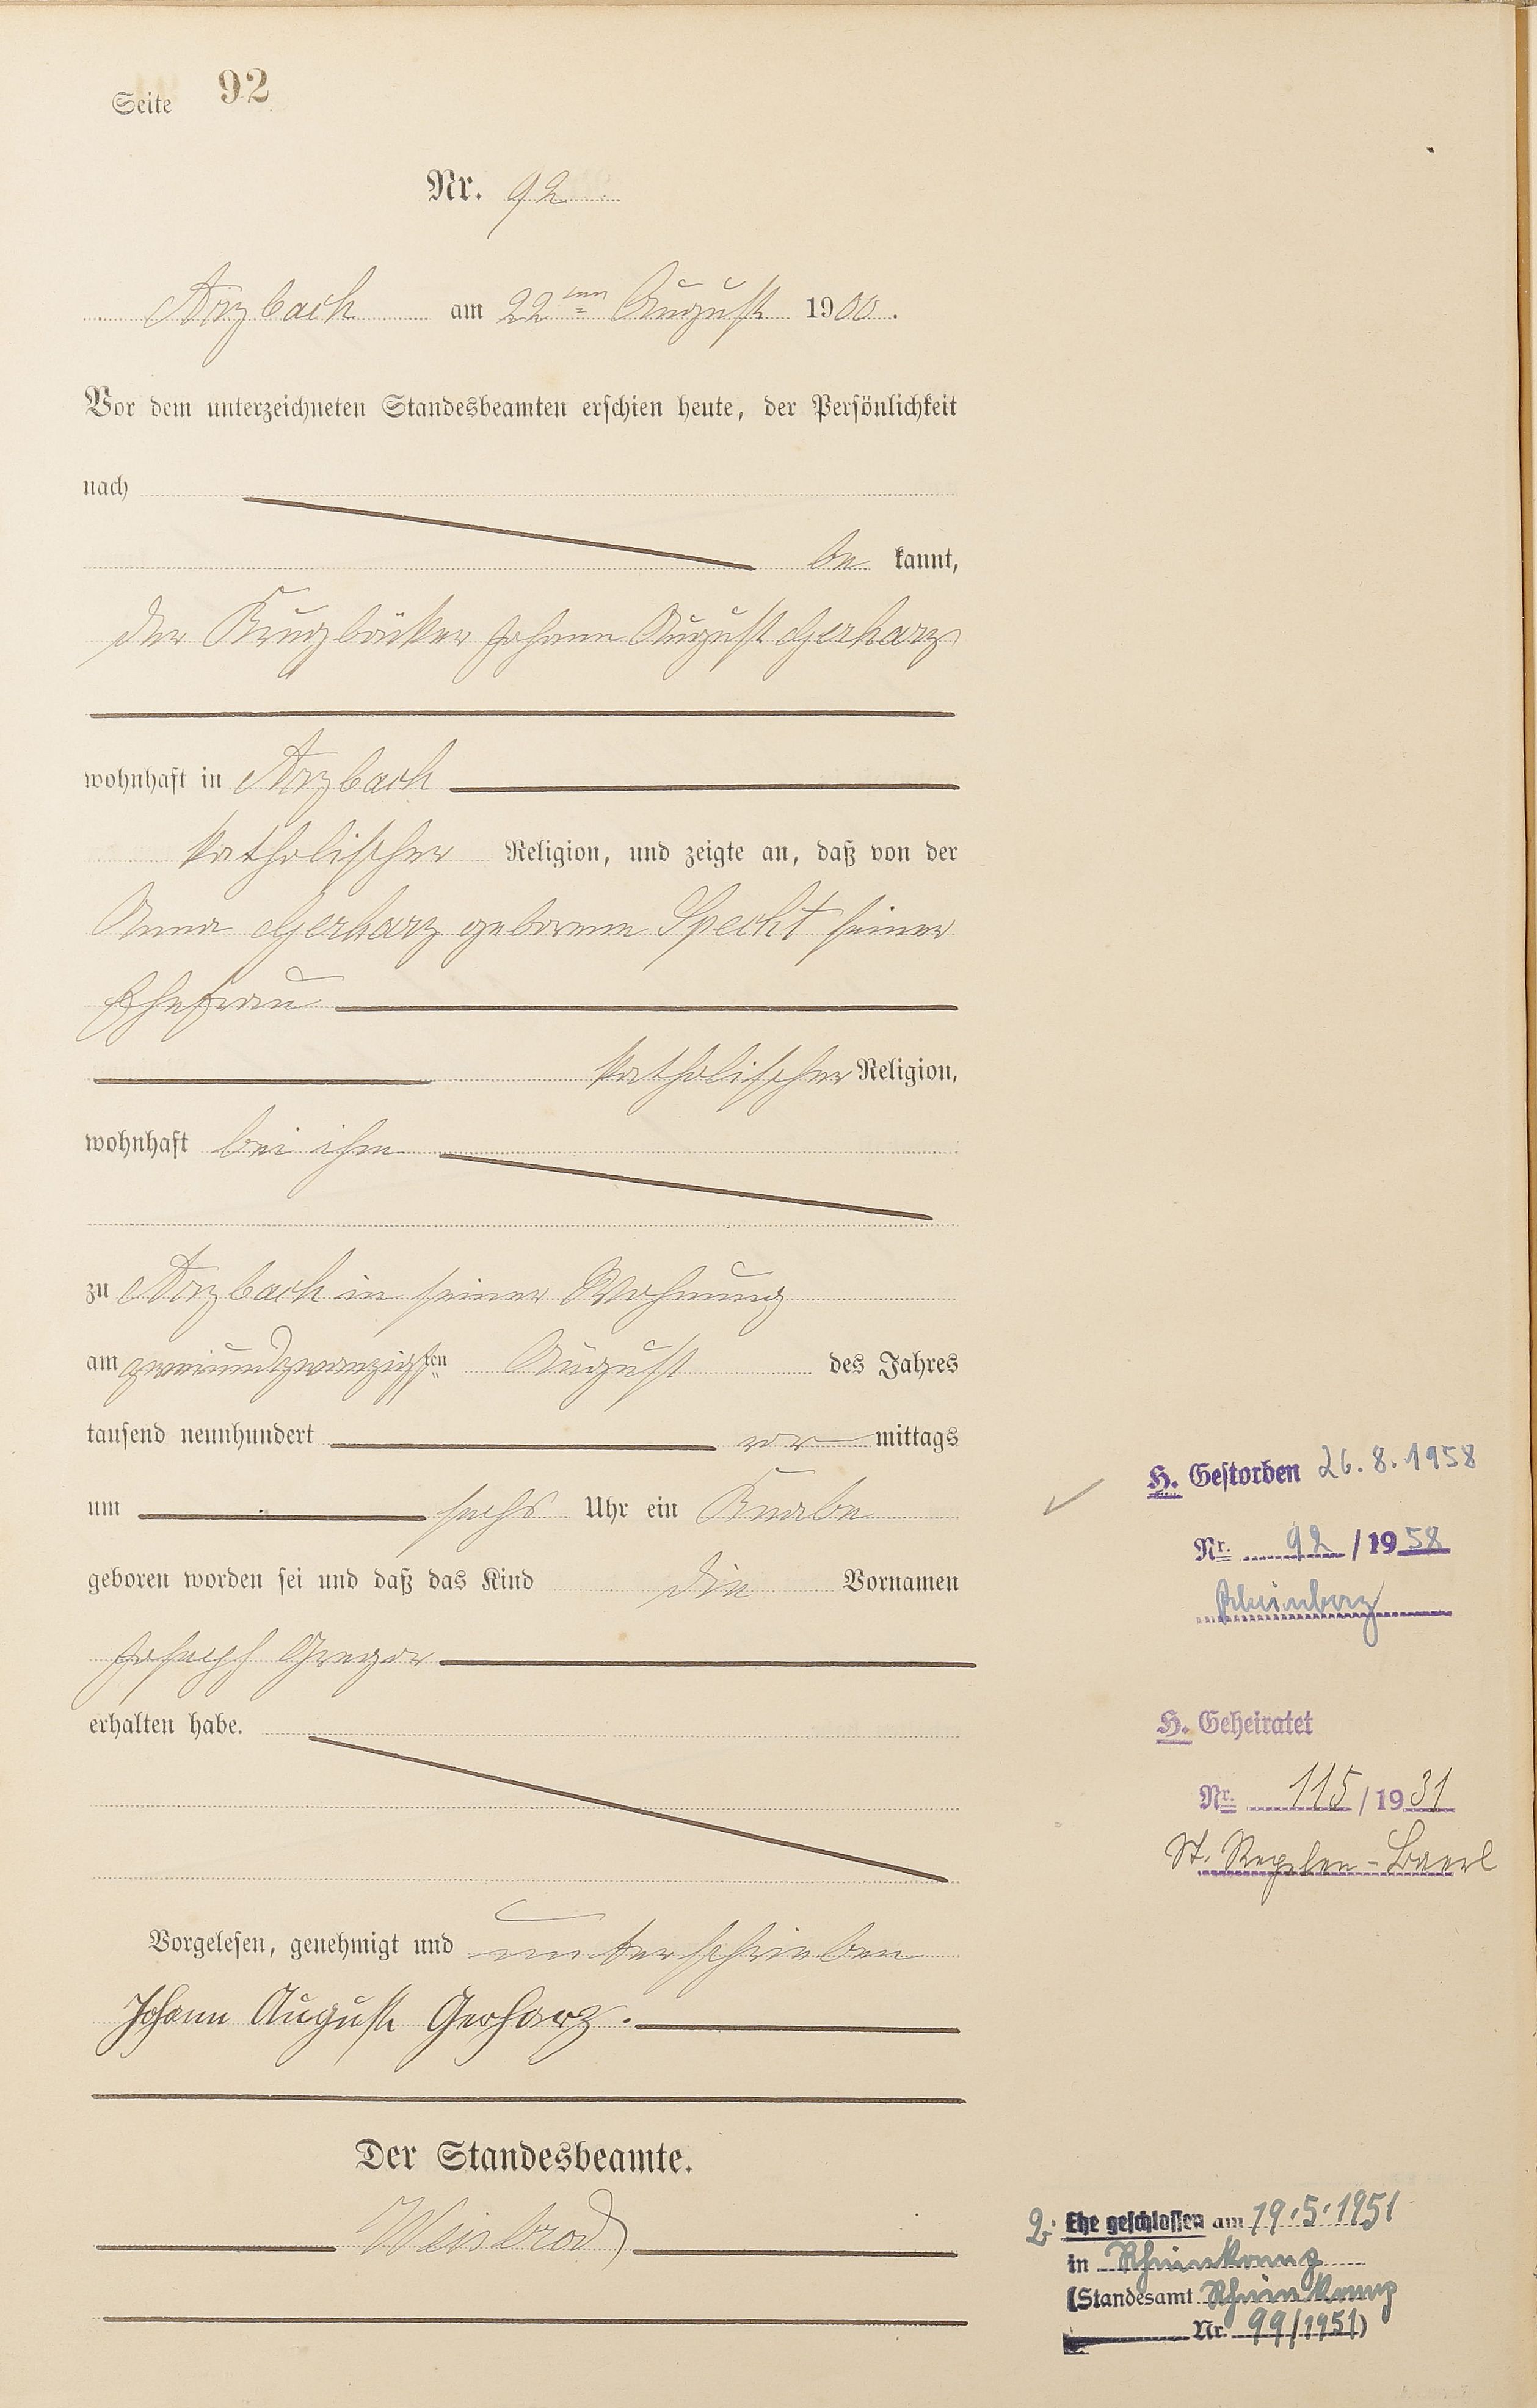 Seite 92
Nr. 92
Arzbach am 22ten August 1900.
Vor dem unterzeichneten Standesbeamten erschien heute, der Persönlichkeit
nach
be kannt,
der Krugbäcker Johann August Gerharz
wohnhaft in Arzbach
katholischer Religion, und zeigte an, daß von der
Anna Gerharz geborene Specht seiner
Ehefrau
katholischer Religion,
wohnhaft bei ihm
zu Arzbach in seiner Wohnung
am zweiundzwanzigsten August des Jahres
tausend neunhundert vor mittags
um sechs Uhr ein Knabe
geboren worden sei und daß das Kind die Vornamen
Joseph Gregor
erhalten habe.
Vorgelesen, genehmigt und unterschrieben
Johann August Gerharz.
Der Standesbeamte.
Weisbrod
H. Gestorben 26.8.1958
Nr. 92/1958
Rheinberg
H. Geheiratet
Nr. 115/1931
St. Repelen-Baerl
2. Ehe geschlossen am 19.5.1951
in Rheinkamp
(Standesamt Rheinkamp
Nr. 99/1951)